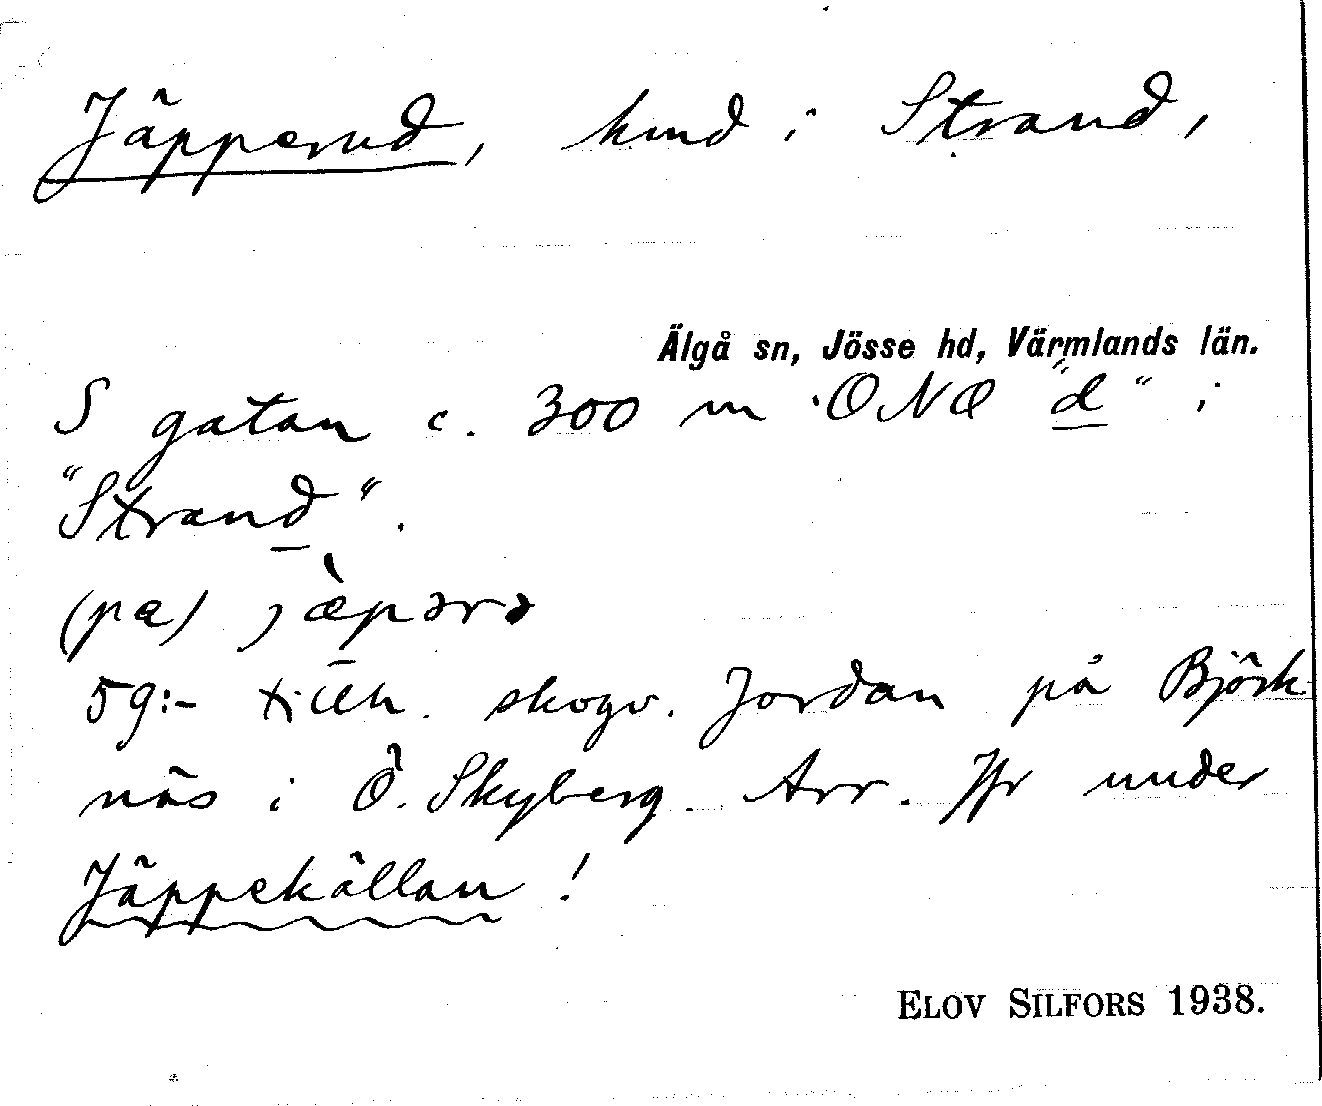 Jäpperud, hmd i Strand,
Älgå sn, Jösse hd, Värmlands län.
S gatan c. 300 m ONO "d" i
"Strand".
(pa) jæ̀pərə
59:- tillh. skogv. Jordan på Björk
näs i Ö. Skyberg. Arr. Jfr under
Jäppekällan!
ELOV SILFORS 1938.